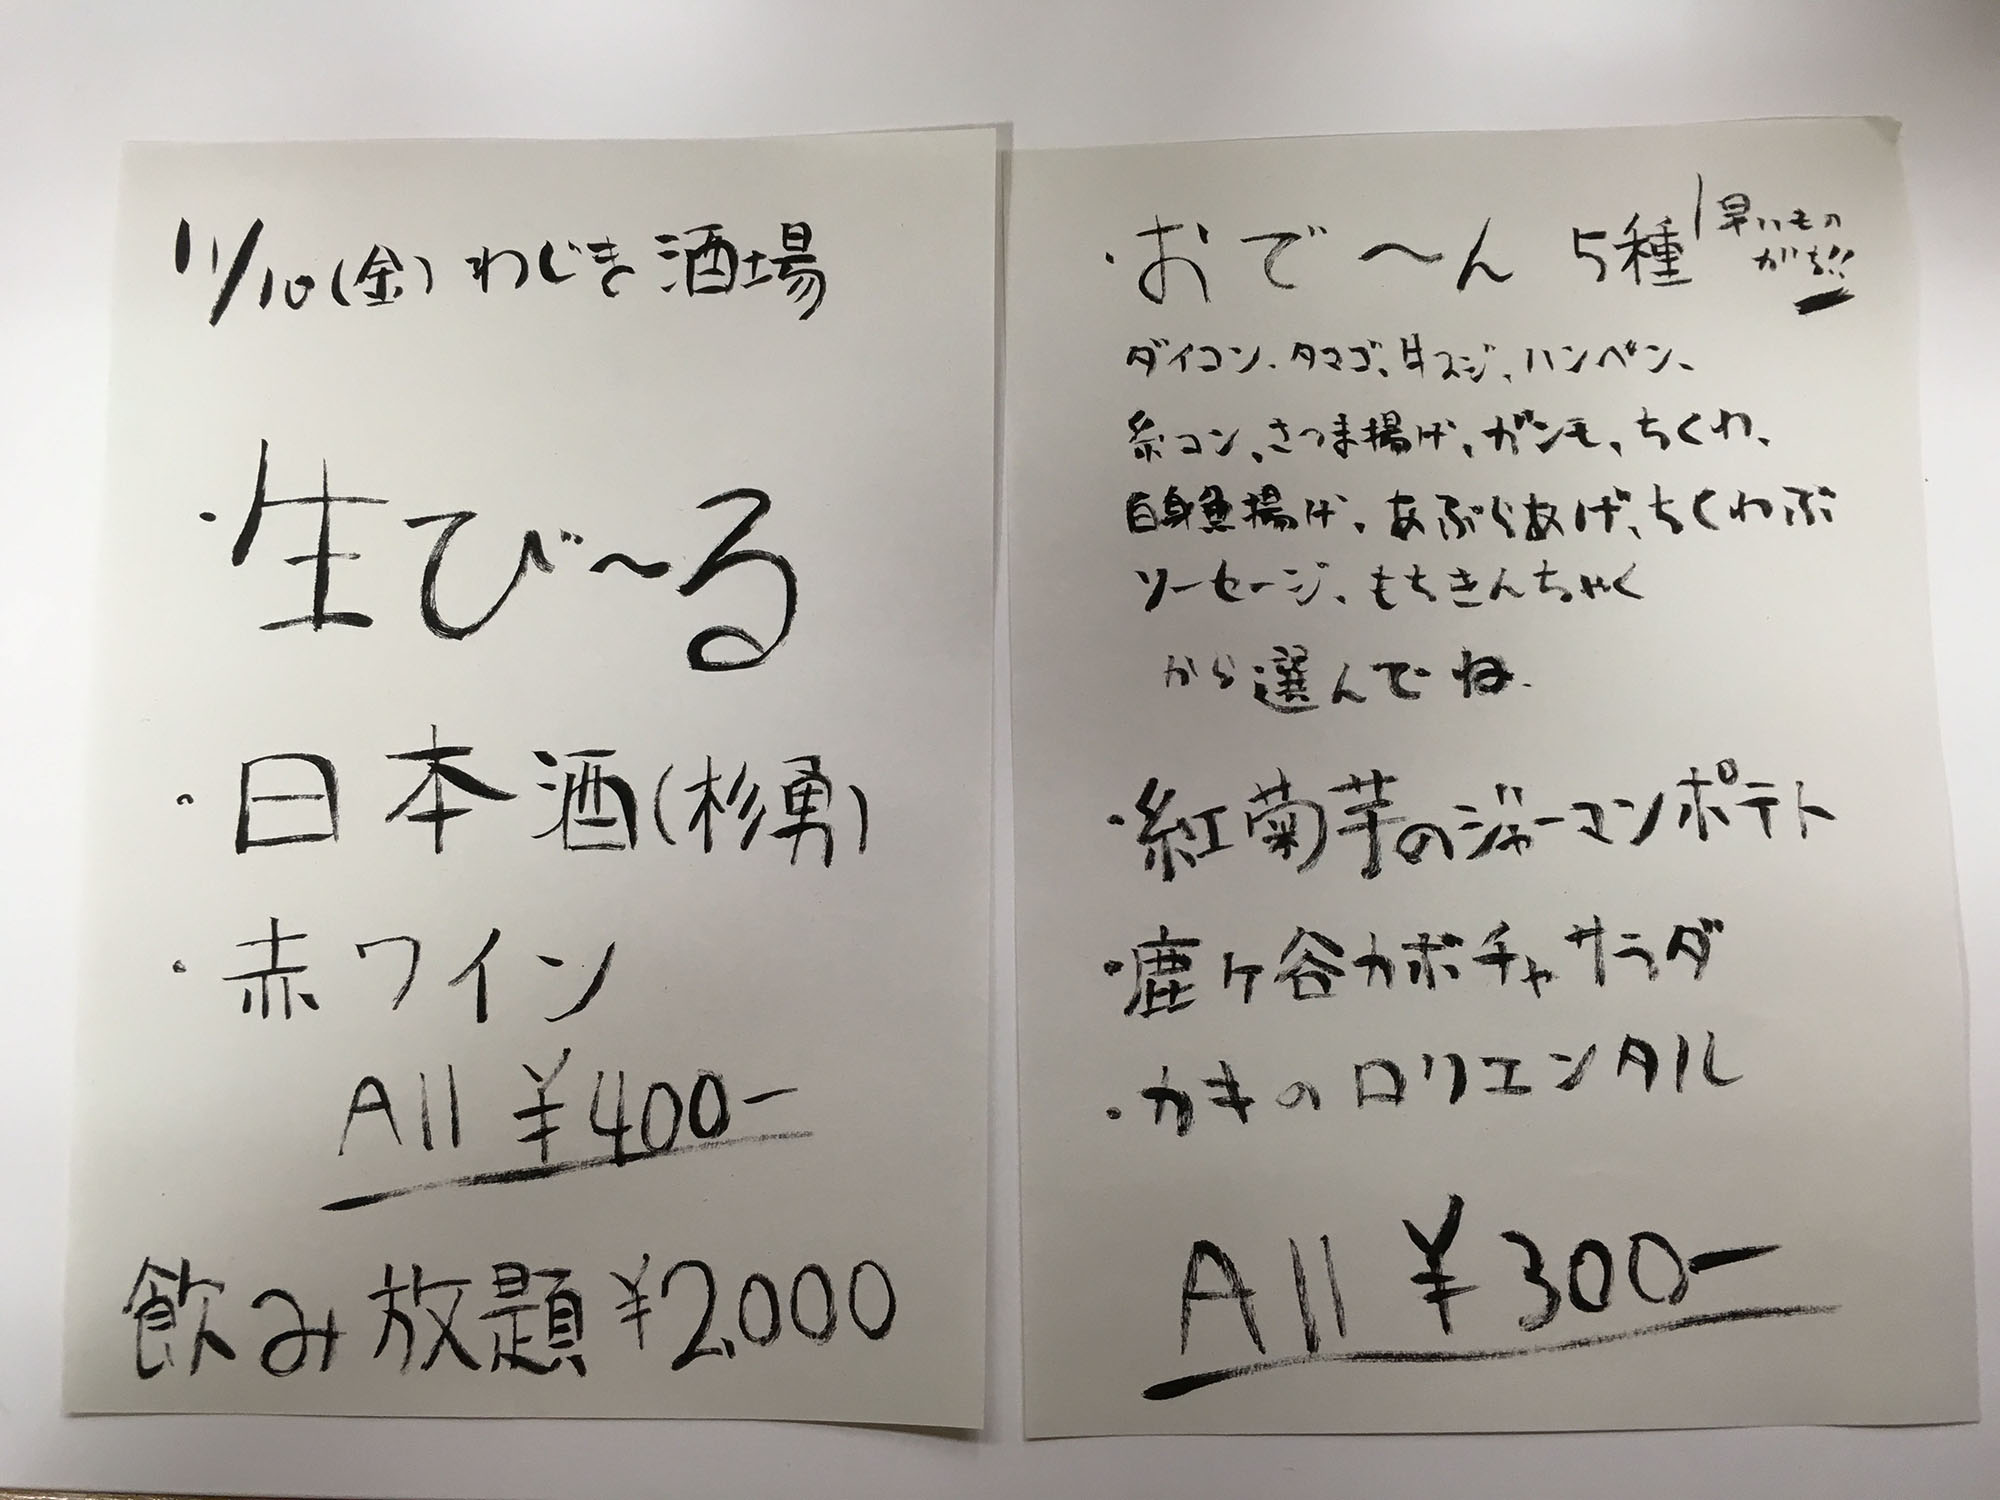 11/10(金)わじき酒場
・生び〜る
・日本酒(杉勇)
・赤ワイン
All ¥400-
飲み放題¥2,000
・おで〜ん 5種
早いもの
がち!!
ダイコン、タマゴ、牛スジ、ハンペン、
糸コン、さつま揚げ、ガンモ、ちくわ、
白身魚揚げ、あぶらあげ、ちくわぶ
ソーセージ、もちきんちゃく
から選んでね.
・紅菊芋のジャーマンポテト
・鹿ケ谷カボチャサラダ
・カキのロリエンタル
All ¥300-